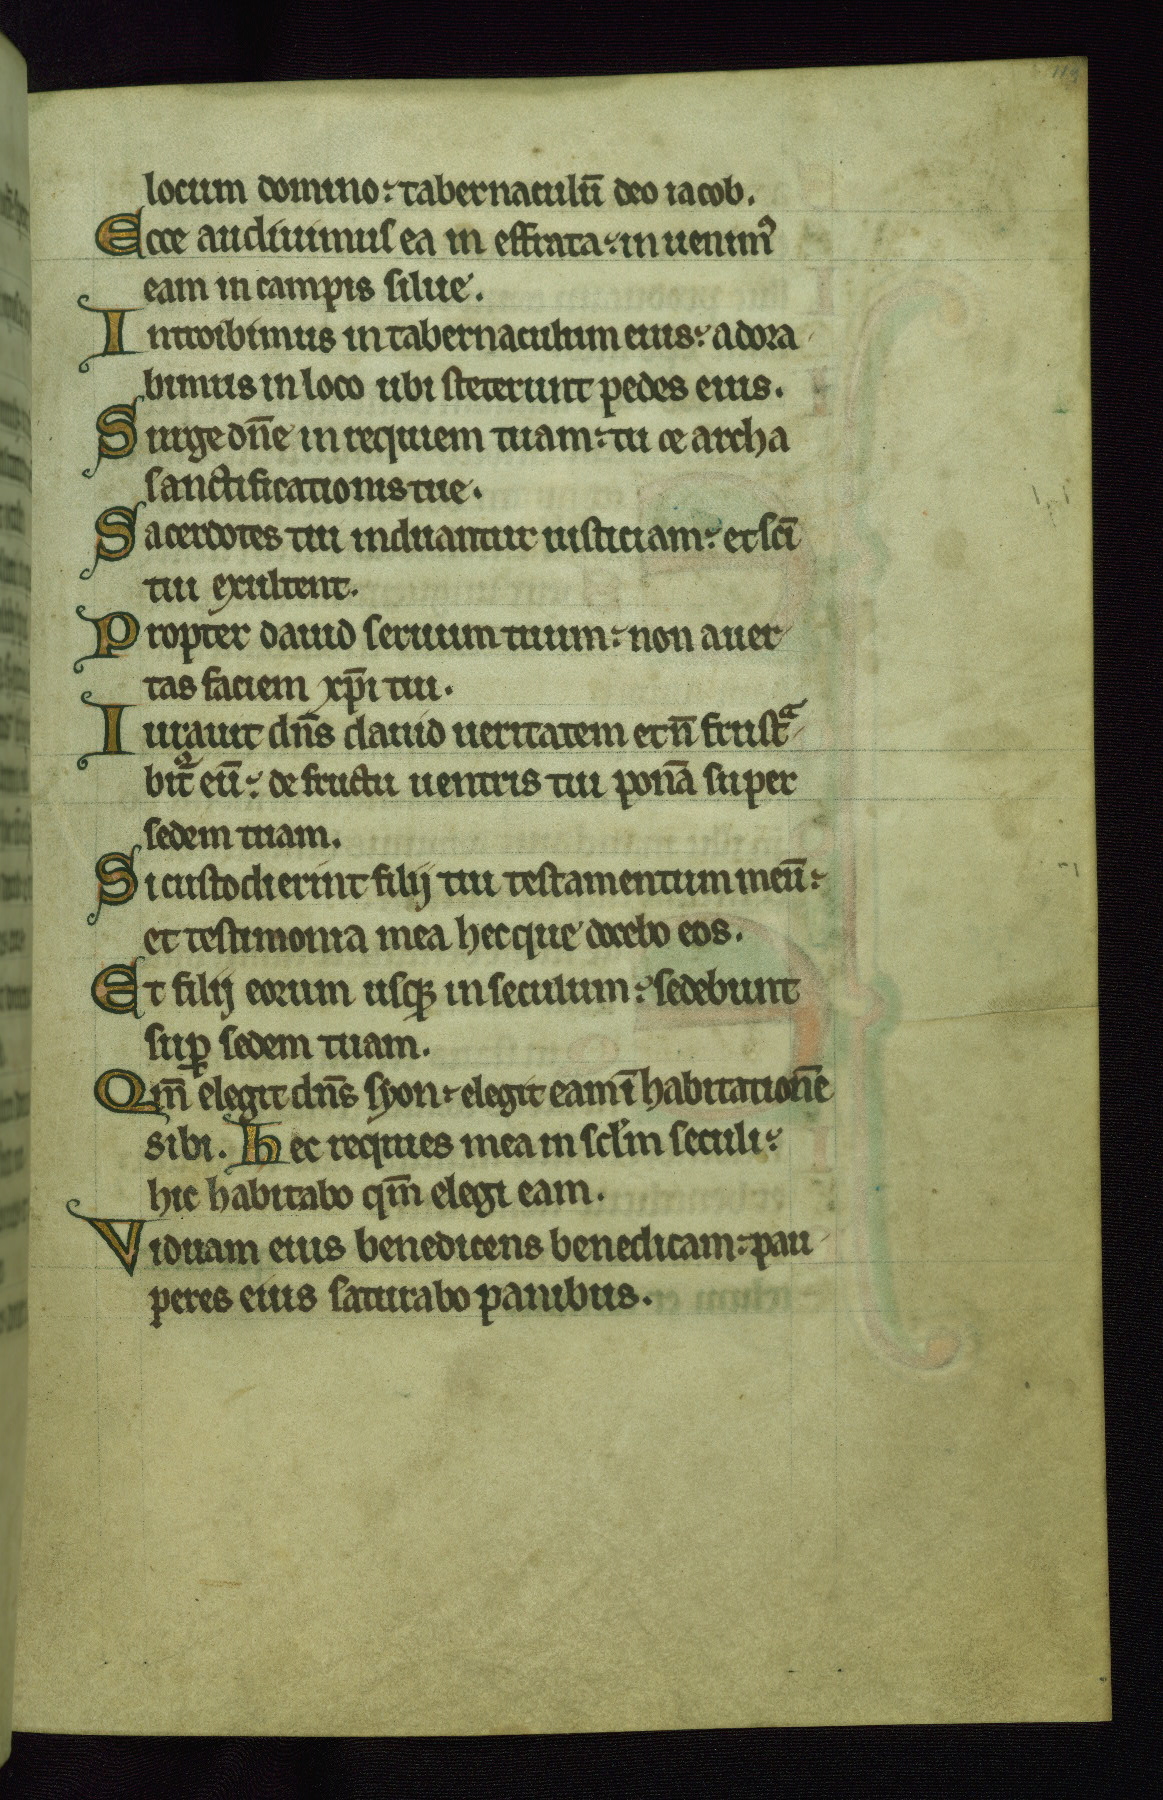 locum domino: tabernaculū deo iacob.
Ecce audiuimus ea in effrata: in uenimꝰ
eam in campis silue.
Introibimus in tabernaculum eius: adora
bimus in loco ubi steterunt pedes eius.
Surge dn̄e in requiem tuam: tu ce archa
sanctificationis tue.
Sacerdotes tui induantur iusticiam: et sc̄i
tui exultent.
Propter dauid seruum tuum: non auer
tas faciem xp̄i tui.
Iurauit dn̄s dauid ueritatem et n̄ frustᵃ
bit̄ eū: de fructu uentris tui ponā super
sedem tuam.
Si custodierint filij tui testamentum meū:
et testimonia mea hec que docebo eos.
Et filij eorum usqꝫ in seculum: sedebunt
suꝑ sedem tuam.
Qm̄ elegit dn̄s syon: elegit eam ī habitationē
sibi. Hec requies mea in sc̄lm seculi:
hic habitabo qm̄ elegi eam.
Viduam eius benedicens benedicam: pau
peres eius saturabo panibus.